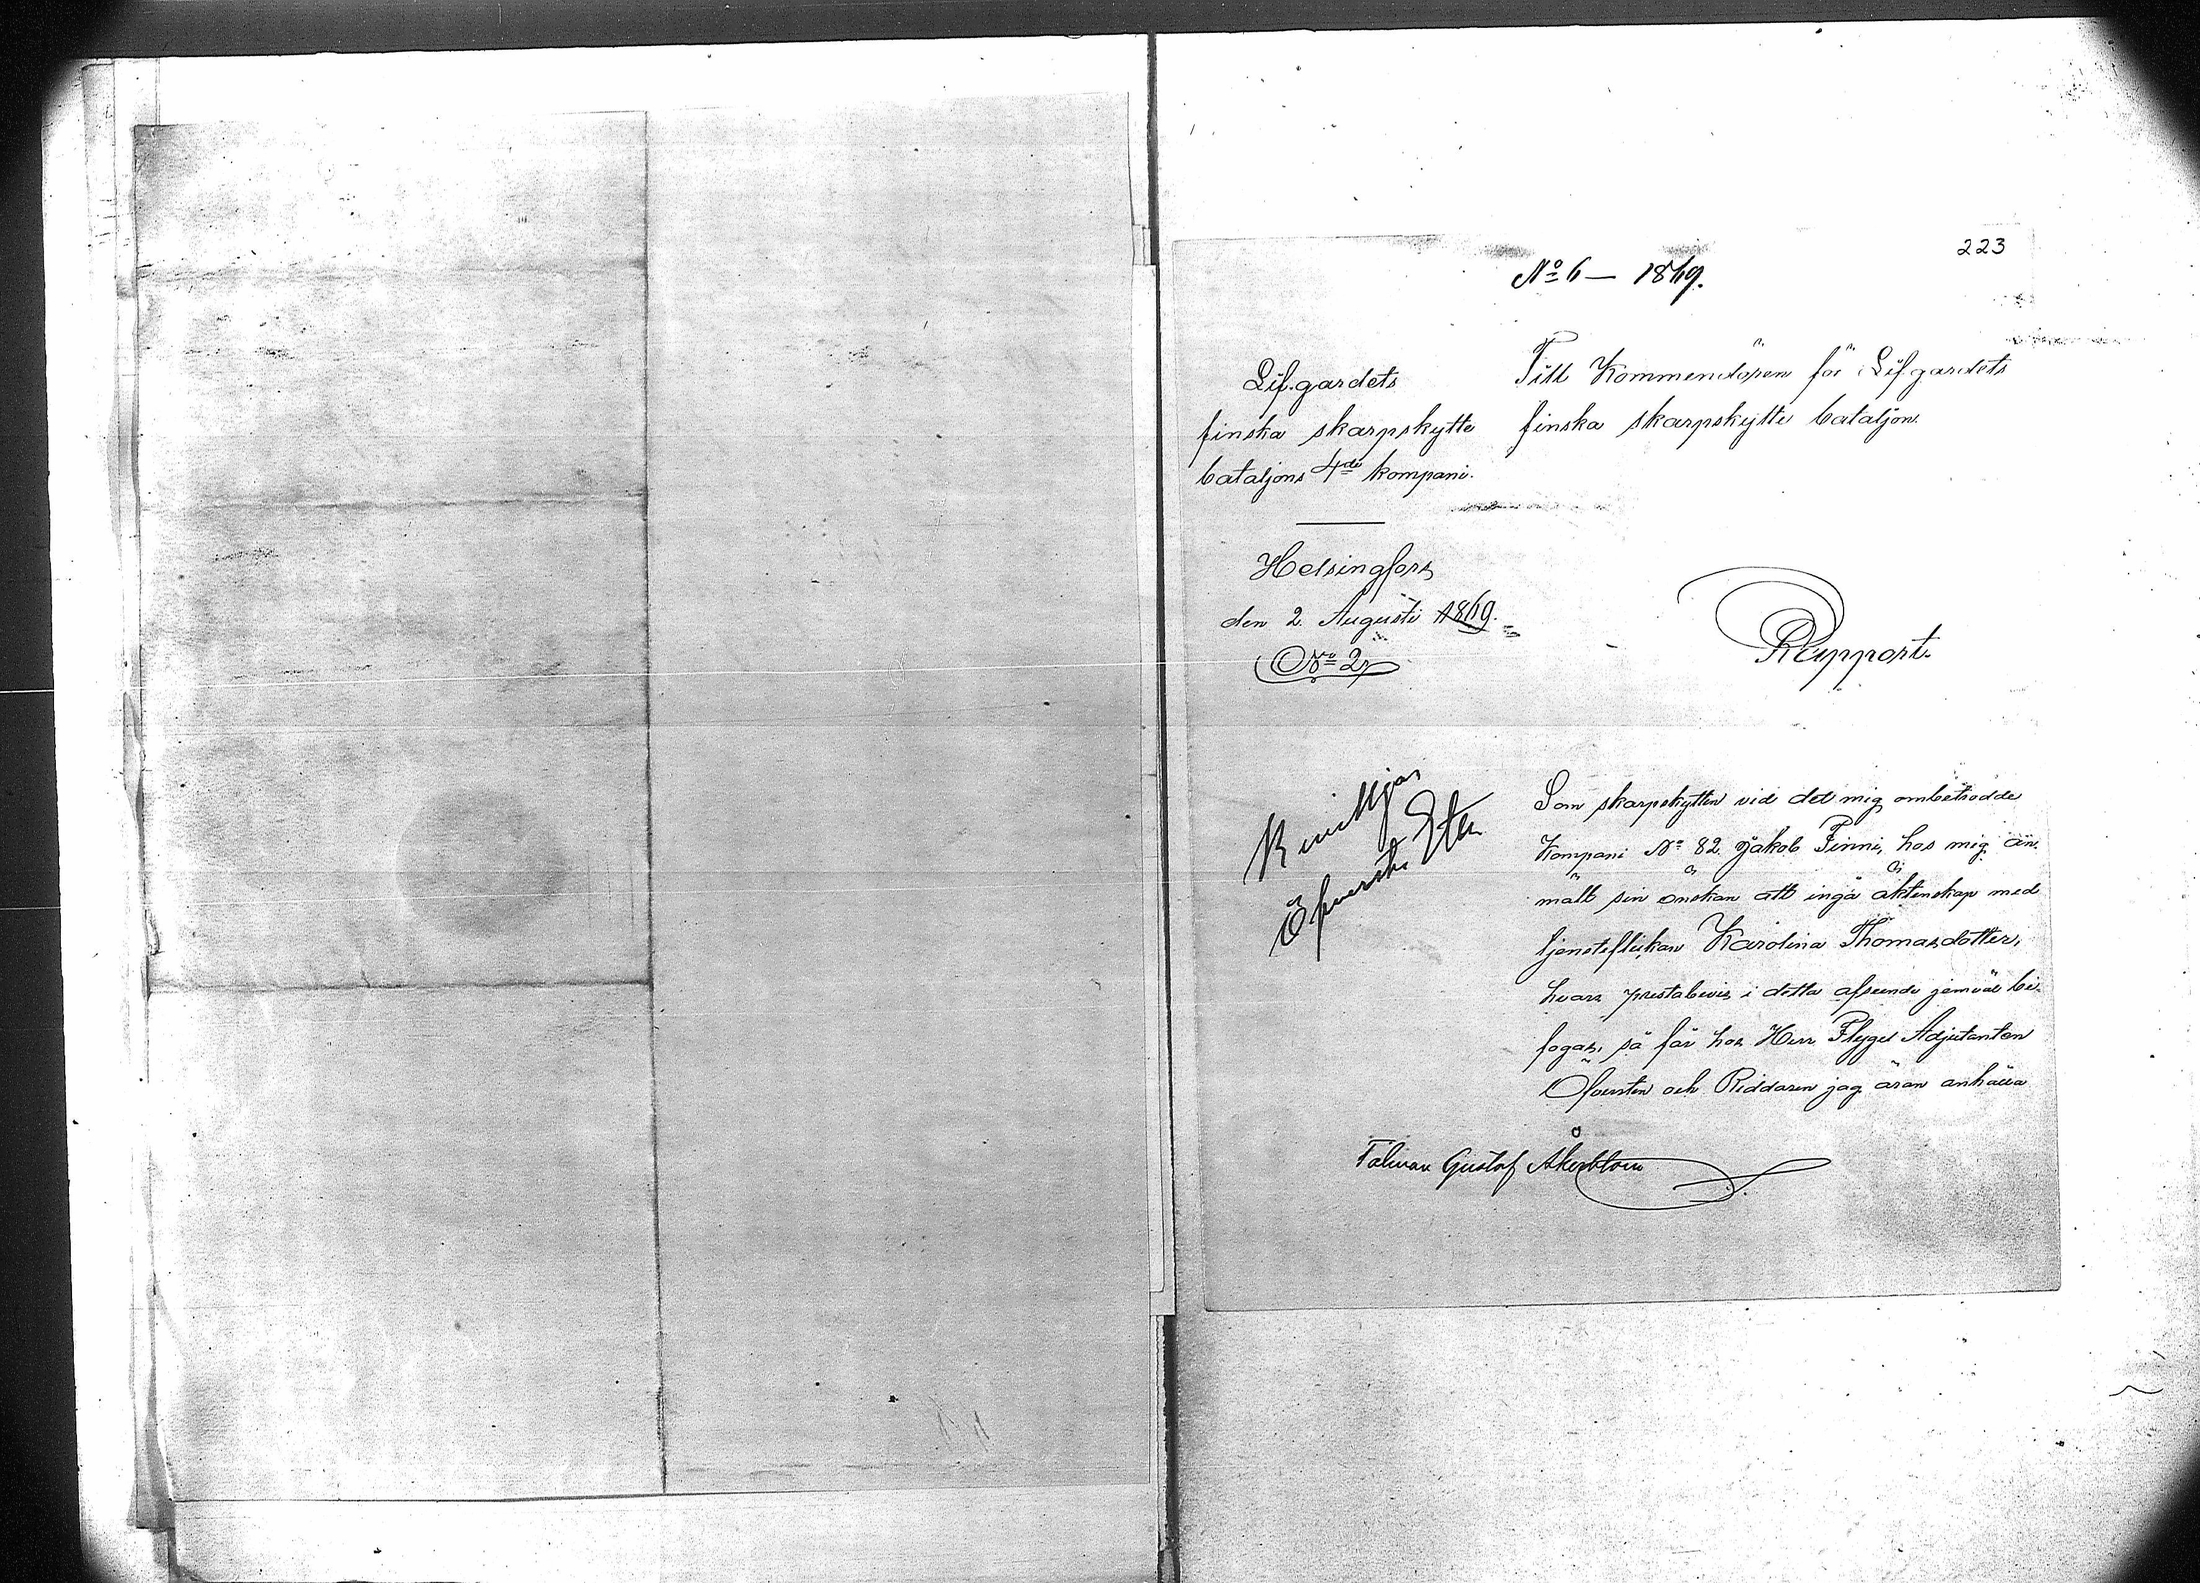 223
No 6 — 1869.
Lif.gardets
finska skarpskytte
bataljons 4de kompani.
Helsingfors
den 2 Augusti 1869.
No 2
Till Kommendören för Lif.gardets
finska skarpskytte bataljon.
Rapport.
Beviljas
Öfverste
Som skarpskytten vid det mig ombetrodde
Kompani No 82 Jakob Finni, hos mig an-
mält sin önskan att ingå äktenskap med
tjensteflickan Karolina Thomasdotter,
hvars prestabevis i detta afseende jemväl bi-
fogas, så får hos Herr Flygel Adjutanten
Öfversten och Riddaren jag äran anhålla
Gustaf Åkerblom